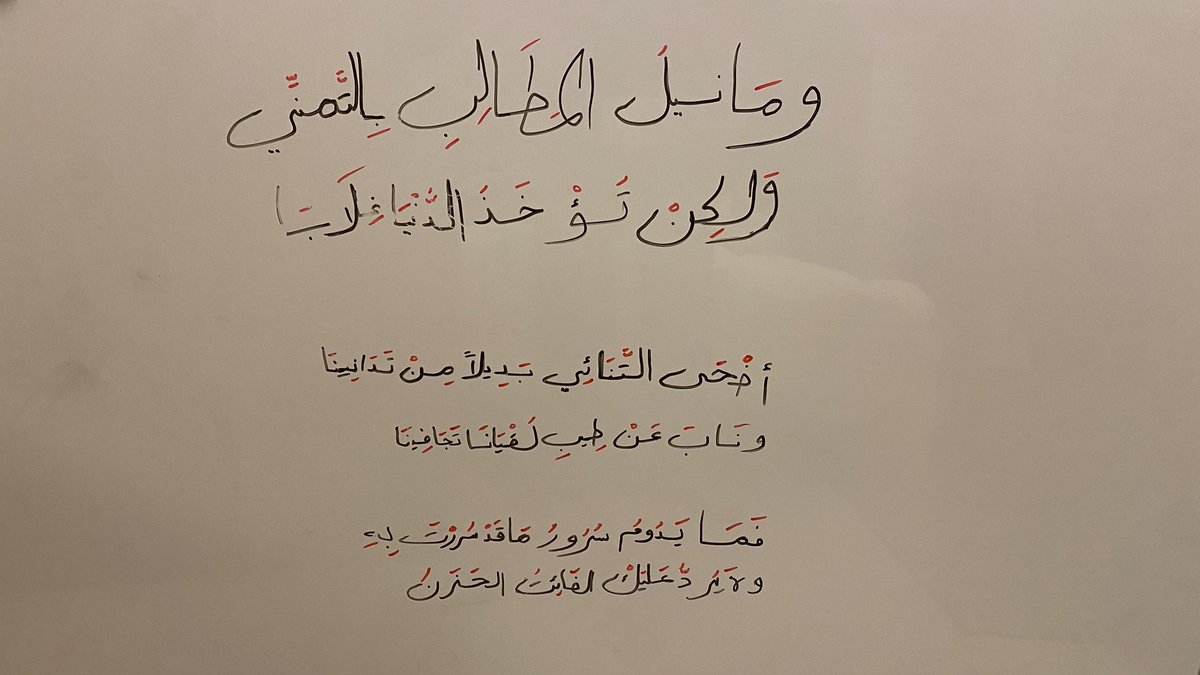 ومَا نيلُ المَطَالِبِ بِالتَّمنِّي
وَلكِنْ تُؤْخَذُ الدُّنْيَا غِلَابَا
أضْحَى التَّنَائِي بَدِيلاً مِنْ تَدَانِينَا
ونَابَ عَنْ طِيبِ لُقْيَانَا تَجَافِينَا
فَمَا يَدُومُ سُرُورُ مَا قَدْ سُرِرْتَ بِهِ
ولَا يَرُدُّ عَلَيْكَ الفَائِتُ الحَزَنُ